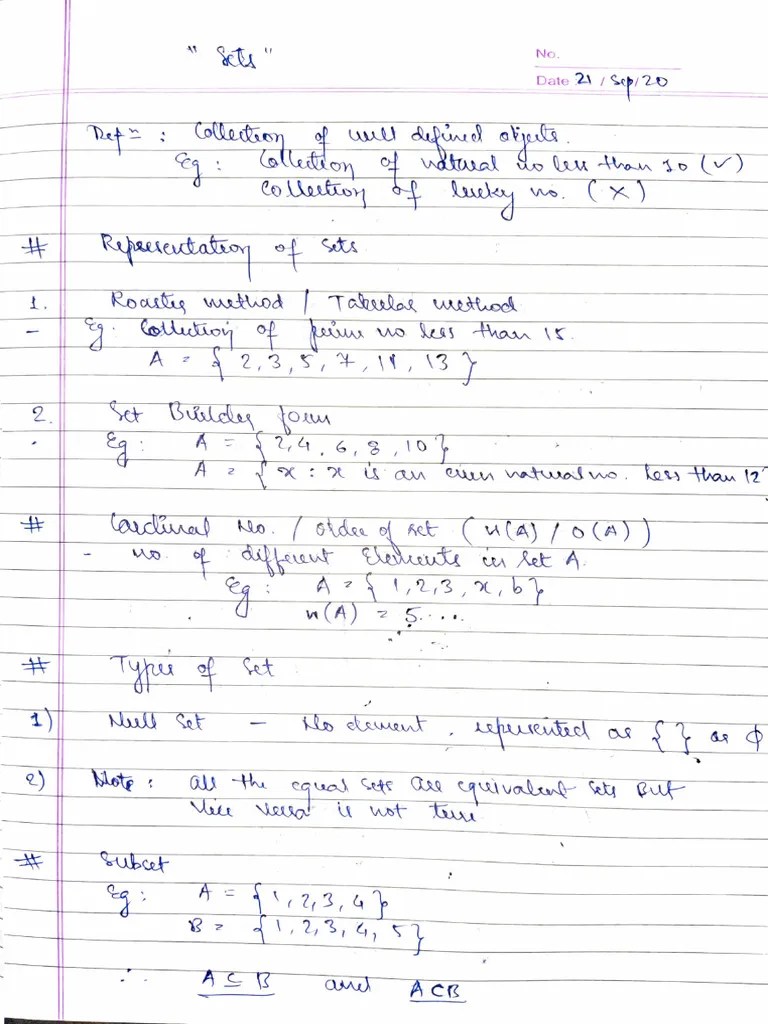 "Sets"
No.
Date 21/Sep/20
Defn : Collection of well defined objects.
Eg : Collection of natural no less than 10 (✓)
Collection of lucky no. (×)
# Representation of sets
1. Roaster method / Tabular method
- Eg. Collection of prime no less than 15.
A = { 2, 3, 5, 7, 11, 13 }
2. Set Builder form
. Eg : A = { 2, 4, 6, 8, 10 }
A = { x : x is an even natural no. less than 12 }
# Cardinal No. / order of set ( n(A) / O(A) )
- no. of different Elements in set A.
Eg : A = { 1, 2, 3, x, b }
n(A) = 5....
# Types of Set
1) Null Set - No element, represented as { } or ϕ
2) Note : all the equal sets are equivalent sets But
vice versa is not true
# Subset
Eg : A = { 1, 2, 3, 4 }
B = { 1, 2, 3, 4, 5 }
∴ A ⊆ B and A ⊂ B